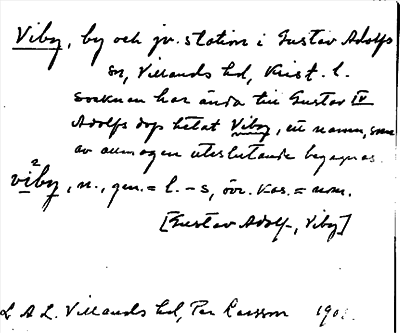 Viby, by och jv. station i Gustav Adolfs
sn, Villands hd, Krist. l.
socknen har ända till Gustav IV
Adolfs dop hetat Viby, ett namn, som
av allmogen uteslutande begagnas.
vi²by, n., gen. = l. -s, övr. kas. = nom.
[Gustav Adolf-, Viby]
L. A. L. Villands hd, Per Larsson 190